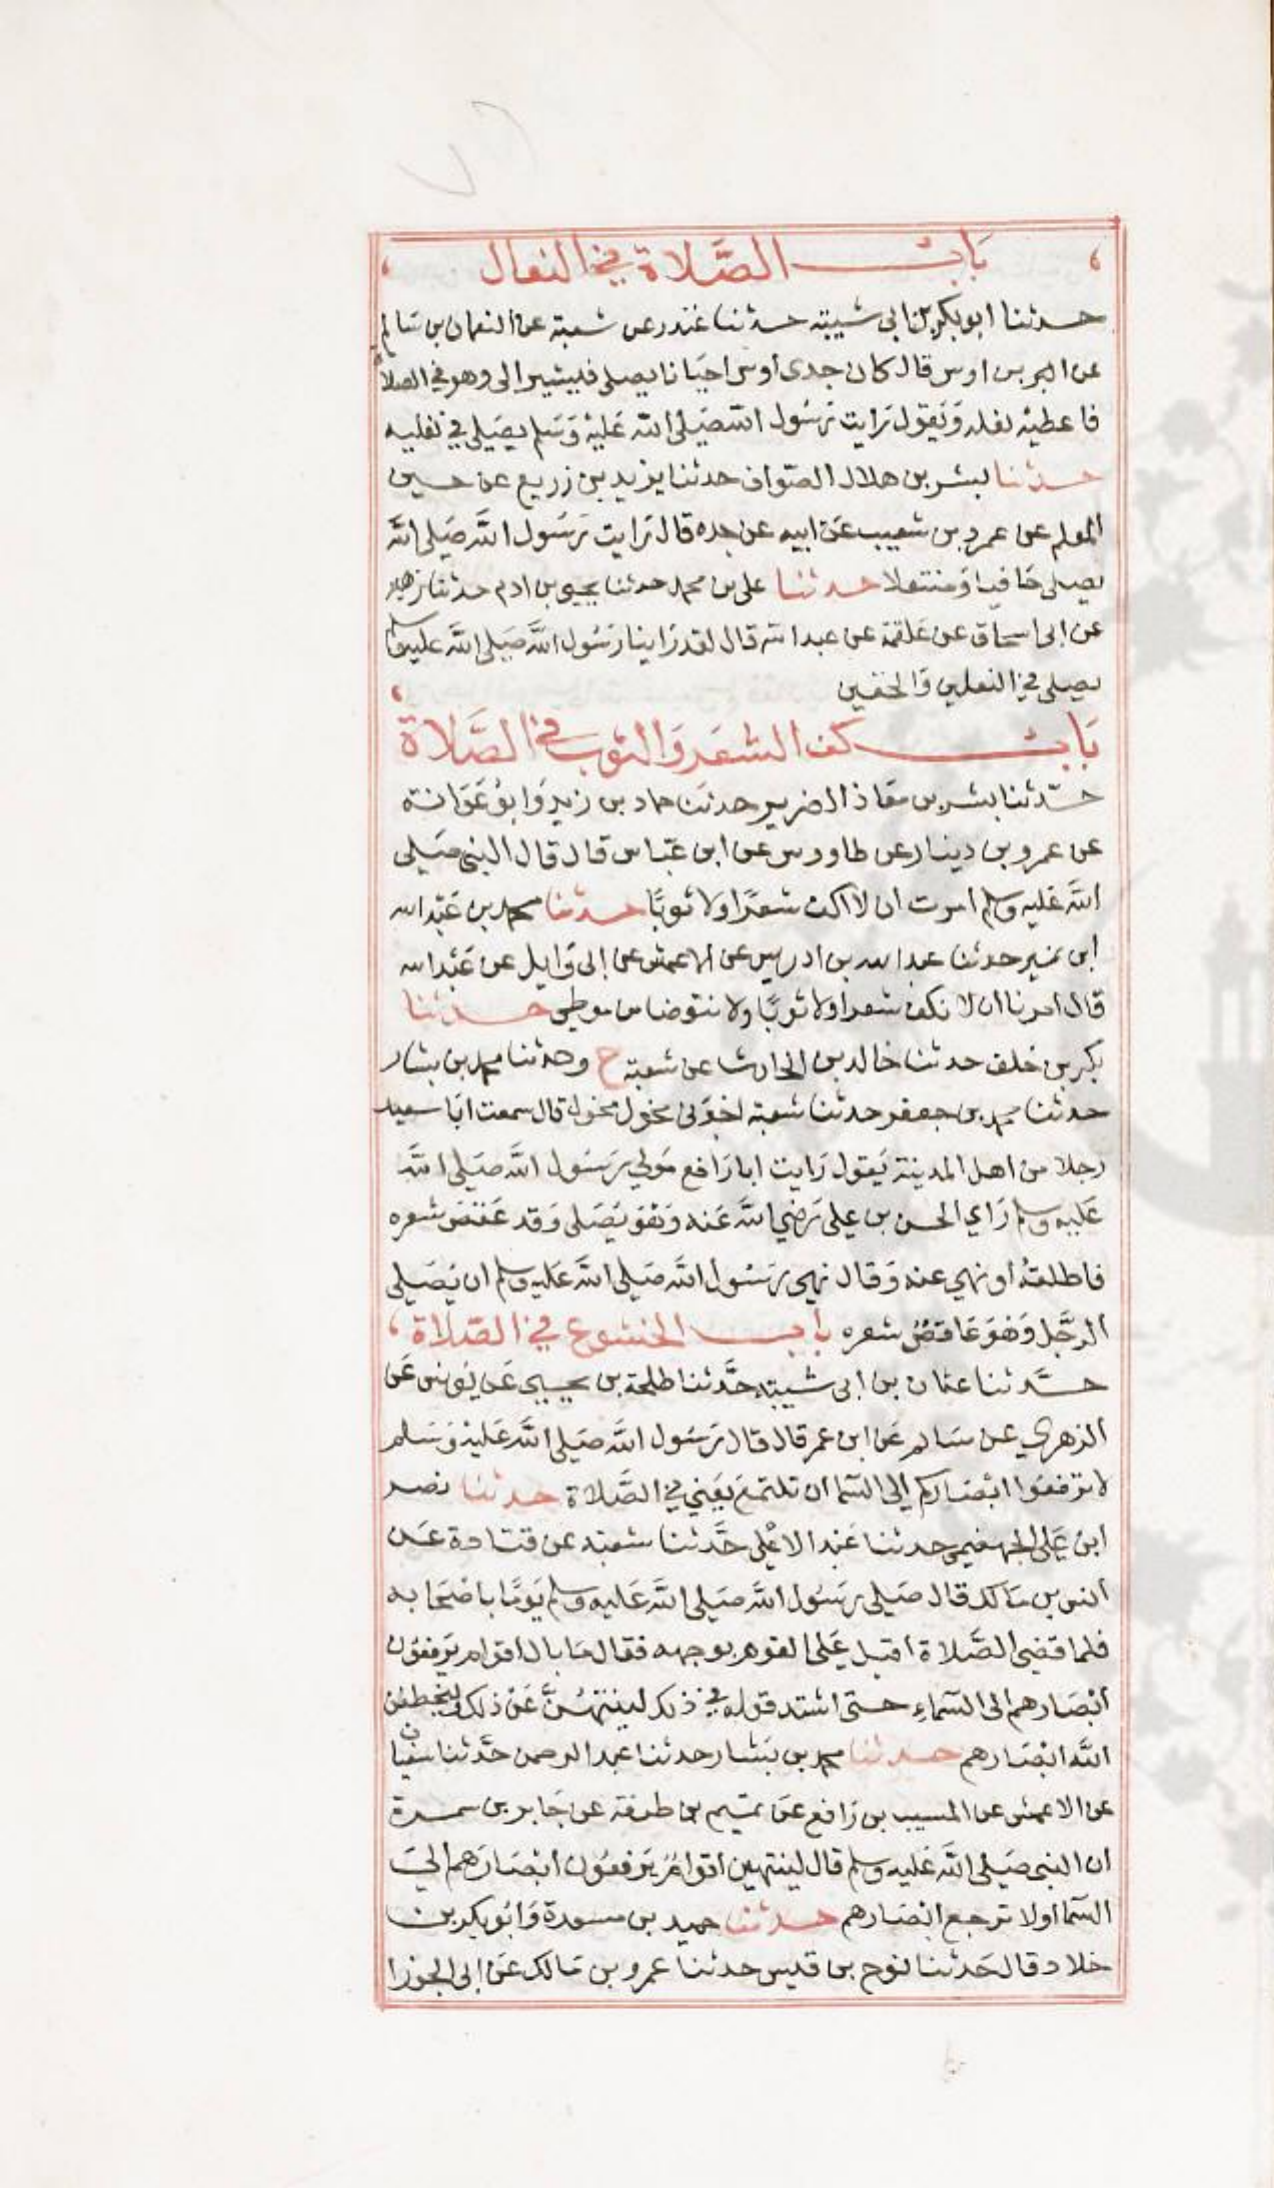 باب الصلاة في النعال
حدثنا ابو بكر بن ابي شيبة حدثنا غندر عن شعبة عن النعمان بن سالم
عن ابن اوس قال كان جدي اوس احيانا يصلي فيشير الي وهو في الصلاة
فاعطيه نعله وَيقول رَايت رَسُول الله صَلى الله عَليْه وَسَلم يصَلي في نعليه
حدثنا بشر بن هلال الصواف حدثنا يزيد بن زريع عن حسين
المعلم عن عمرو بن شعيب عَن ابيه عن جده قال رَايت رَسُول الله صَلى الله
يصلي حَافيا وَمنتعلا حدثنا علي بن محمد حدثنا يحيى بن ادم حدثنا زهير
عن ابي اسحاق عن عَلقمة عن عبد الله قال لقد رَاينا رَسُول الله صَلى الله عليه وسلم
يصلي في النعلين وَالخفين
بَاب كف الشعَر وَالثوب في الصَّلاة
حدثنا بشر بن معَاذ الضرير حدثنا حماد بن زيد وَابوُ عَوَانة
عن عمرو بن دينار عن طاووس عن ابن عَباس قال قال النبي صَلى
الله عَليه وسلم امرت ان لا اكف شعرًا ولا ثوبًا حدثنا محمد بن عَبْد الله
ابن نمير حدثنا عبد الله بن ادريس عن الاعمش عن ابي وَايل عن عَبْد الله
قال امرنا ان لا نكف شعرا ولا ثوبًا ولا نتوضا من موطي حدثنا
بكر بن خلف حدثنا خالد بن الحارث عن شعبة ح وحدثنا محمد بن بشار
حدثنا محمد بن جعفر حدثنا شعبة اخبرني مخول قال سمعت ابَا سعيد
رجلا من اهل المدينة يَقول رَايت ابا رَافع مَولى رَسُول الله صَلى الله
عَليه وسلم رَاي الحسن بن علي رَضي الله عَنه وَهوَ يَصَلي وَقد عَقصَ شعره
فاطلقهُ او نهي عنه وَقال نهي رَسُول الله صَلى الله عَليه وسلم ان يَصَلي
الرجَّل وَهوَ عَاقصُ شعره باب الخشوع في الصَّلاة
حدثنا عثمان بن ابي شيبة حَّدثنا طلحة بن يحيى عَن يُونس عَن
الزهري عن سَالم عَن ابن عمر قال قال رَسُول الله صَلى الله عَليْه وَسَلم
لا ترفعوُا ابْصَاركم الى السَّما ان تلتمعَ يَعْني في الصَّلاة حدثنا نصر
ابن عَلي الجهضمي حدثنا عَبْد الاعْلى حَّدثنا شعبة عن قتادة عَن
انس بن مَالك قال صَلى رَسُول الله صَلى الله عَليه وسلم يَومًا باصْحَابه
فلما قضى الصَّلاة اقبل عَلى القوم بوجهه فقال مَا بال اقوام يَرفعوُن
ابْصَارهم الى السَّماءِ حتى اشتد قوله في ذلك لينتهُنَّ عَن ذلك ليخطفن
الله ابْصَارهم حدثنا محمد بن بَشار حدثنا عبد الرحمن حَّدثنا سفيان
عن الاعمش عن المسيب بن رَافع عن تميم بن طرفة عن جَابر بن سمرة
ان النبي صَلى الله عَليه وسلم قال لينتهين اقوامُ يَرفعوُن ابْصَارَهم الى
السَّما اولا ترجع ابْصَارهم حدثنا حميد بن مسعدة وَابُو بكر بن
خلاد قال حَدثنا نوح بن قيس حدثنا عمرو بن مَالك عَن ابي الجوزا